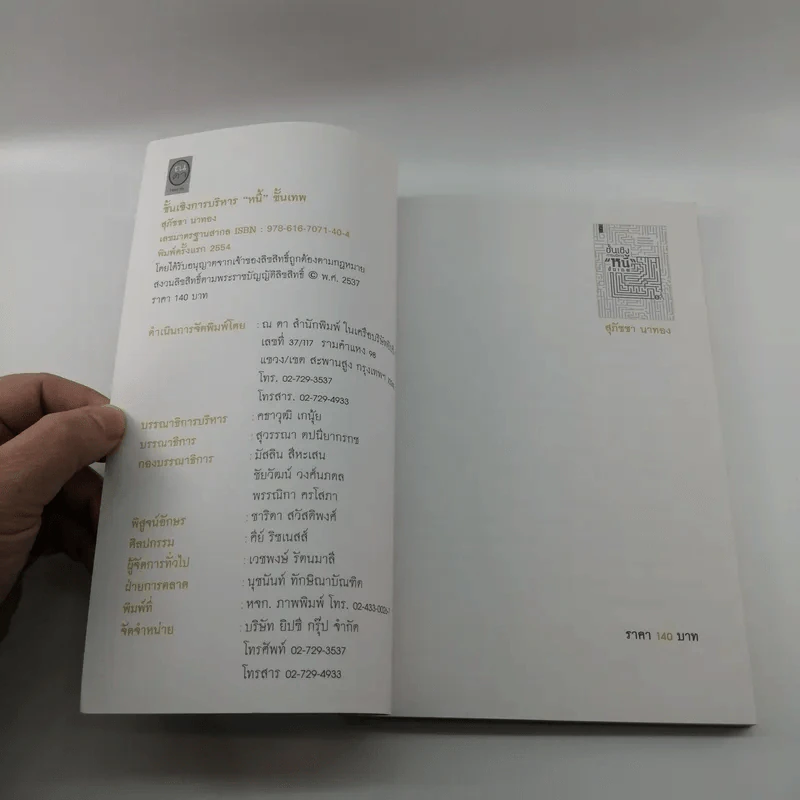 ชั้นเชิงการบริหาร "หนี้" ขั้นเทพ
สุภัชชา นาทอง
เลขมาตรฐานสากล ISBN : 978-616-7071-40-4
พิมพ์ครั้งแรก 2554
โดยได้รับอนุญาตจากเจ้าของลิขสิทธิ์ถูกต้องตามกฎหมาย
สงวนลิขสิทธิ์ตามพระราชบัญญัติลิขสิทธิ์ © พ.ศ. 2537
ราคา 140 บาท
ดำเนินการจัดพิมพ์โดย : ณ ดา สำนักพิมพ์ ในเครือบริษัท
เลขที่ 37/117 รามคำแหง 98
แขวง/เขต สะพานสูง กรุงเทพฯ
โทร. 02-729-3537
โทรสาร. 02-729-4933
บรรณาธิการบริหาร : คชาวุฒิ เกนุ้ย
บรรณาธิการ : สุวรรณา ตปนียากรกช
กองบรรณาธิการ : มัสลิน สีหะเสน
ชัยวัฒน์ วงศ์นภดล
พรรณิกา ครโสภา
พิสูจน์อักษร : ชาริดา สวัสดิพงศ์
ศิลปกรรม : ศีย์ ริชเนสส์
ผู้จัดการทั่วไป : เวชพงษ์ รัตนมาลี
ฝ่ายการตลาด : นุชนันท์ ทักษิณาบัณฑิต
พิมพ์ที่ : หจก. ภาพพิมพ์ โทร. 02-433-0026-
จัดจำหน่าย : บริษัท ยิปซี กรุ๊ป จำกัด
โทรศัพท์ 02-729-3537
โทรสาร 02-729-4933
ชั้นเชิง
"หนี้"
ขั้นเทพ
สุภัชชา นาทอง
ราคา 140 บาท